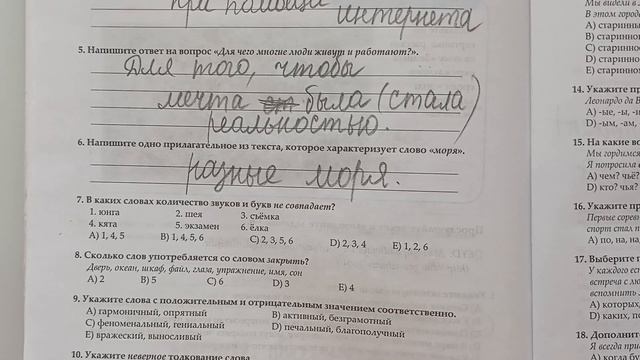 при помощи интернета
5. Напишите ответ на вопрос «Для чего многие люди живут и работают?».
Для того, чтобы
мечта была (стала)
реальностью.
6. Напишите одно прилагательное из текста, которое характеризует слово «моря».
разные моря.
7. В каких словах количество звуков и букв не совпадает?
1. юнга 2. шея 3. съёмка
4. кята 5. экзамен 6. ёлка
A) 1, 4, 5 B) 1, 4, 5, 6 C) 2, 3, 5, 6 D) 2, 3, 4 E) 1, 2, 6
8. Сколько слов употребляется со словом закрыть?
Дверь, океан, шкаф, файл, глаза, упражнение, имя, сон
A) 2 B) 5 C) 6 D) 3 E) 4
9. Укажите слова с положительным и отрицательным значением соответственно.
A) гармоничный, опрятный B) активный, безграмотный
C) феноменальный, гениальный D) печальный, благополучный
E) вражеский, выносливый
10. Укажите неверное толкование слова
Мы видели в
В этом городе
A) старинный
B) старинном
C) старинное
D) старинны
E) старинном
14. Укажите пр
Леонардо да В
A) -ые, -ы, -и
D) -ым, -ам,
15. На какие во
Мы гордимся
Я попросила
A) чем? чьё?
D) кто? чья?
16. Укажите пр
Первые сорев
спорт стал п
A) по, на, на
17. Выберите
У каждого се
встреча с лю
вспомнить
A) которых,
D) каких, по
18. Дополните
Я всегда при
A) когда бу